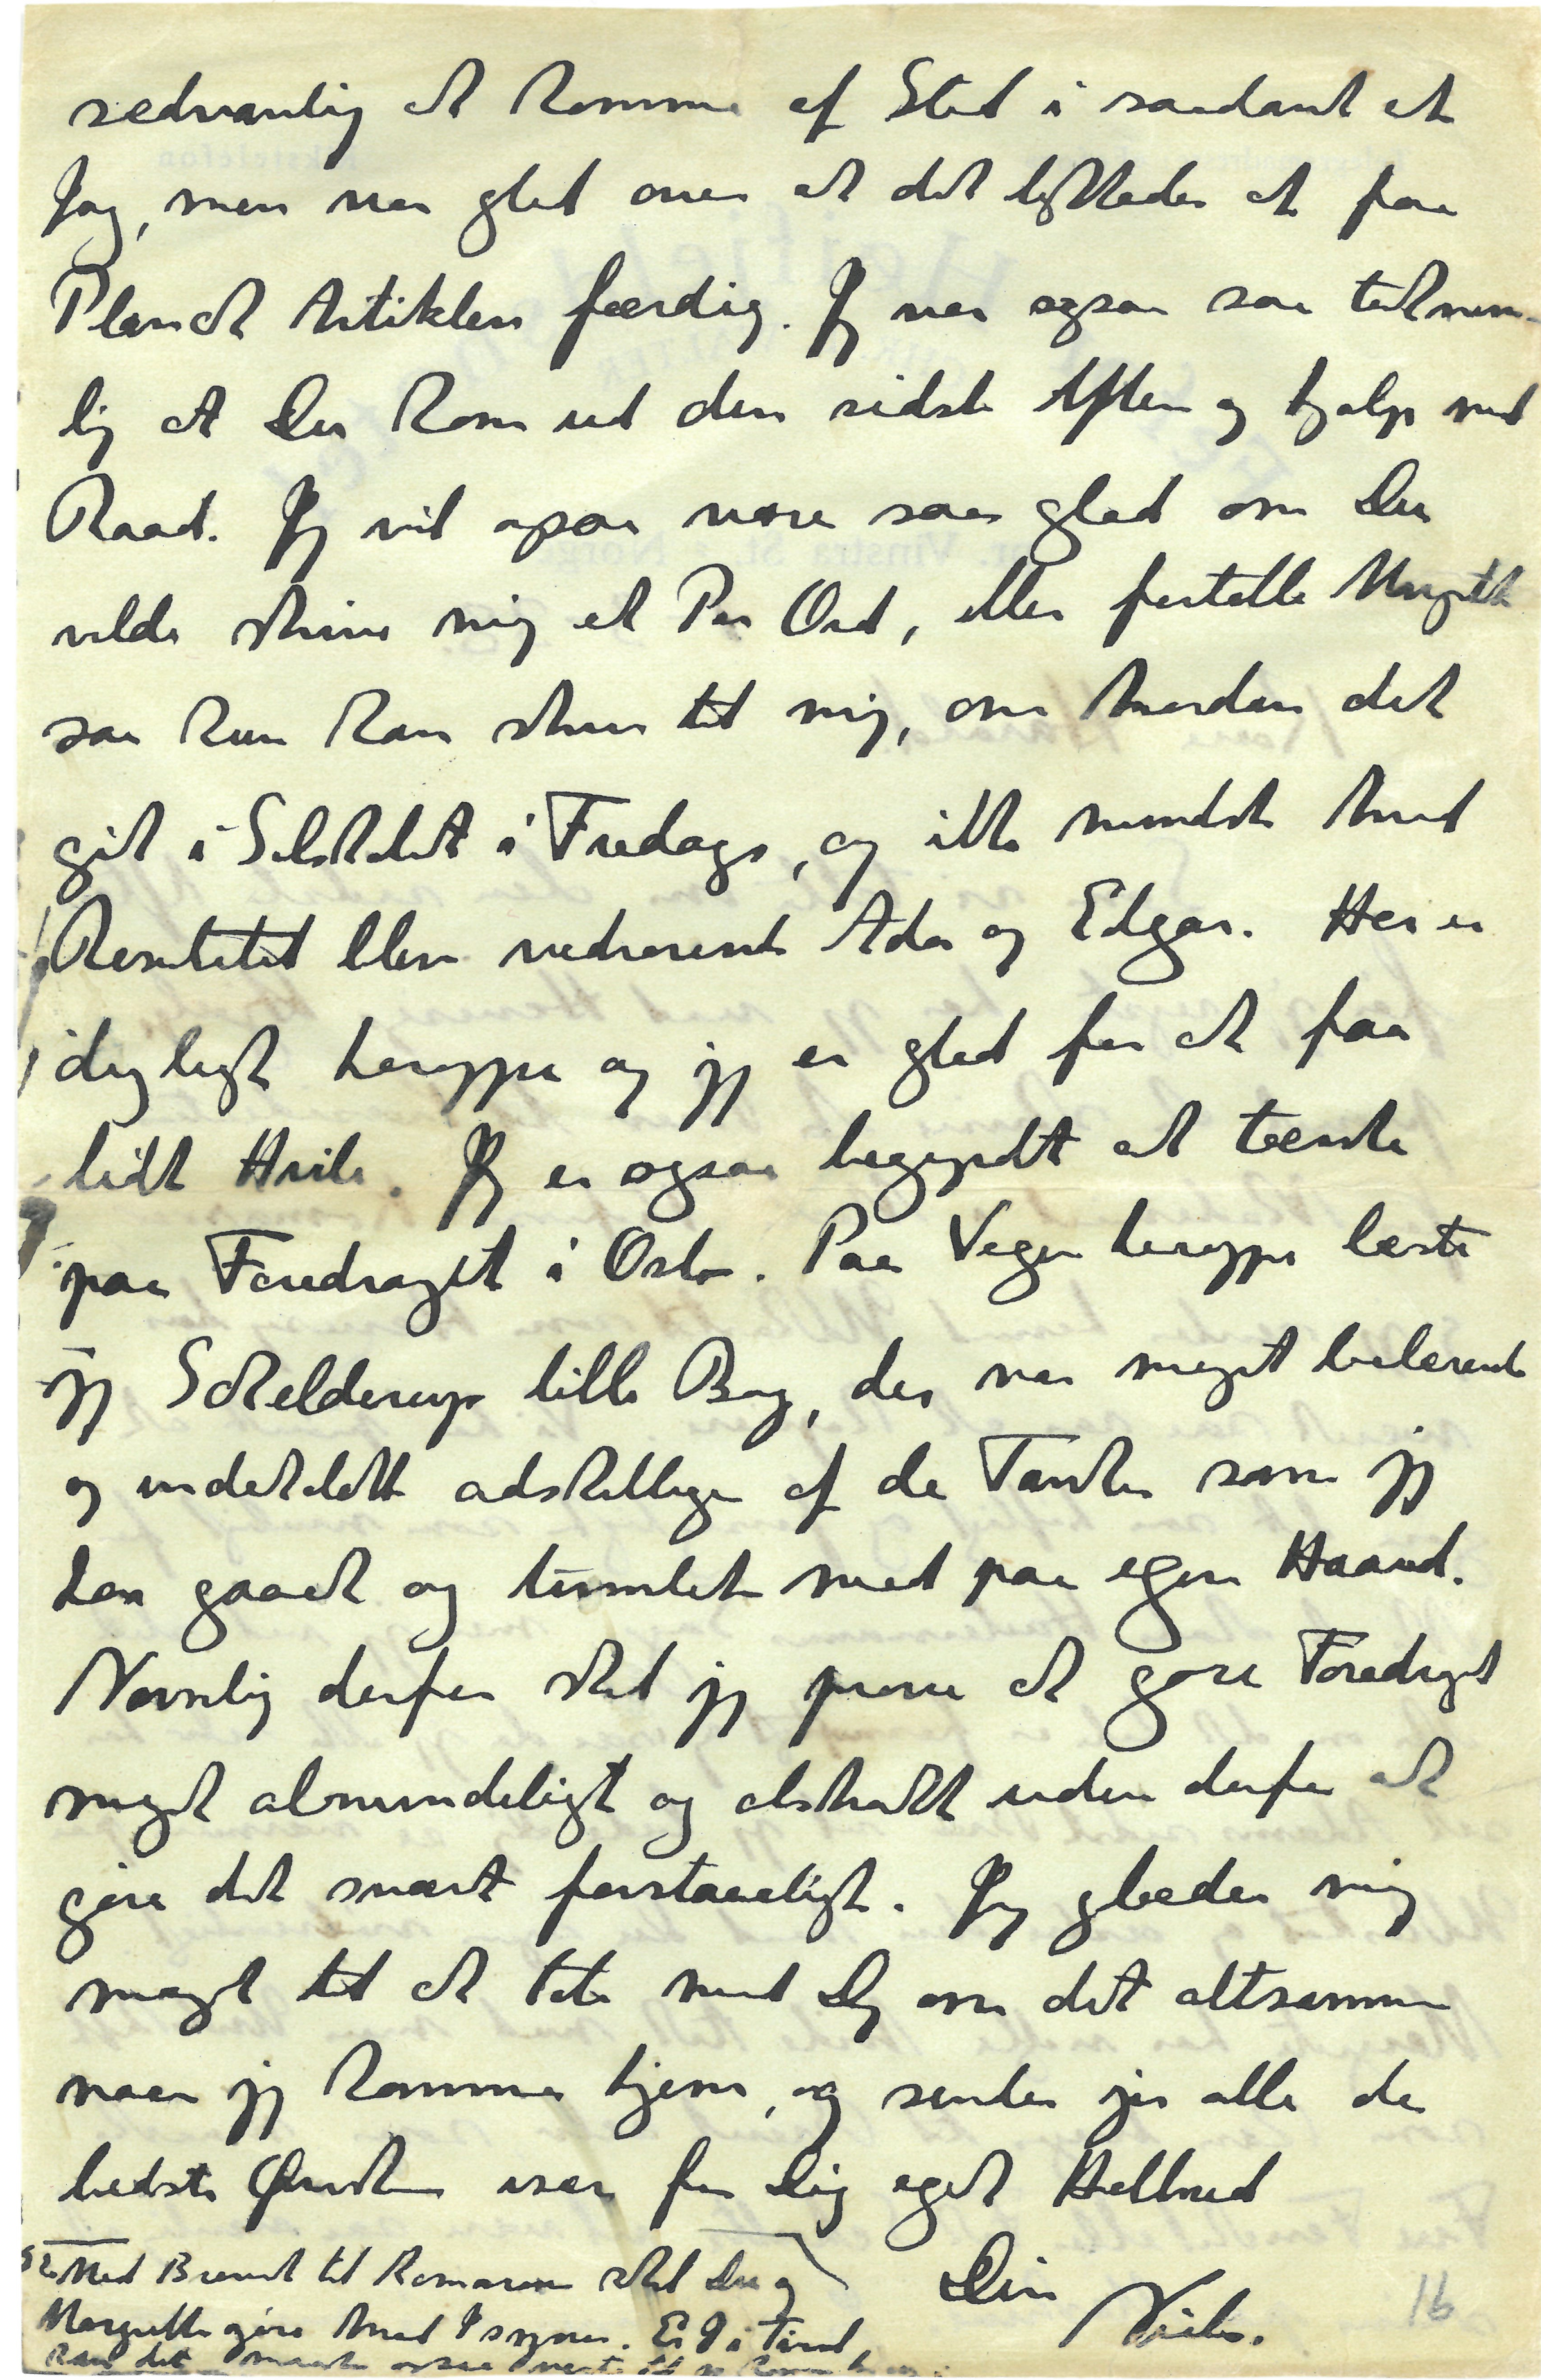 sedvanlig at komme af Sted i saadant et
Jag, men var glad over at det lykkedes at faa
Planck Artiklen færdig. Jeg var ogsaa saa taknem-
lig at Du kom ud den sidste Aften og hjalp med
Raad. Jeg vil ogsaa være saa glad om Du
vilde skrive mig et Par Ord, eller fortælle Margrethe
saa hun kan skrive til mig, om hvordan det
gik i Selskabet i Fredags, og ikke mindst hvad
Resultatet blev vedrørende Ada og Edgar. Her er
dejligt heroppe og jeg er glad for at faa
lidt Hvile. Jeg er ogsaa begyndt at tænke
paa Foredraget i Oslo. Paa Vejen heroppe læste
jeg Schelderup lille Bog, der var meget belærende
og indeholdt adskillige af de Tanker som jeg
har gaaet og tumlet med paa egen Haand.
Navnlig derfor skal jeg prøve at gøre Foredraget
meget almindeligt og abstrakt uden derfor at
gøre det svært forstaaeligt. Jeg glæder mig
meget til at tale med Dig om det altsammen
naar jeg kommer hjem, og sender jer alle de
bedste Ønsker især for Dig eget Helbred
Din
Niels.
Med Brevet til Ramanen skal Du og
Margrethe gøre hvad I synes. Er I i Tvivl
kan det maaske ogsaa vente til jeg kommer
16